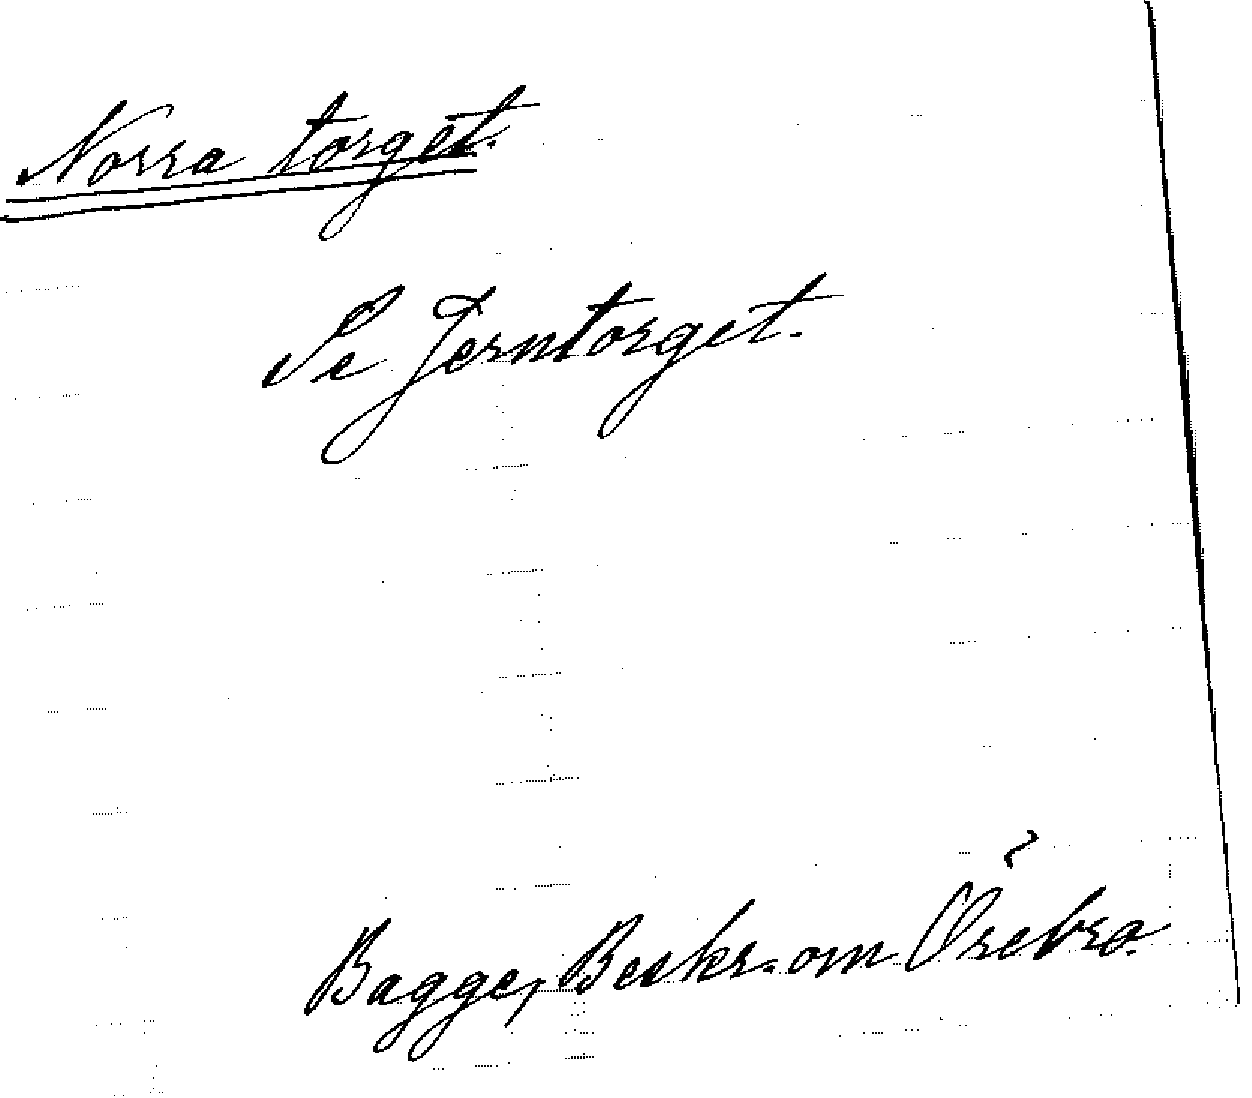 Norra torget.
Se Jerntorget.
Bagge, Beskr. om Örebro.